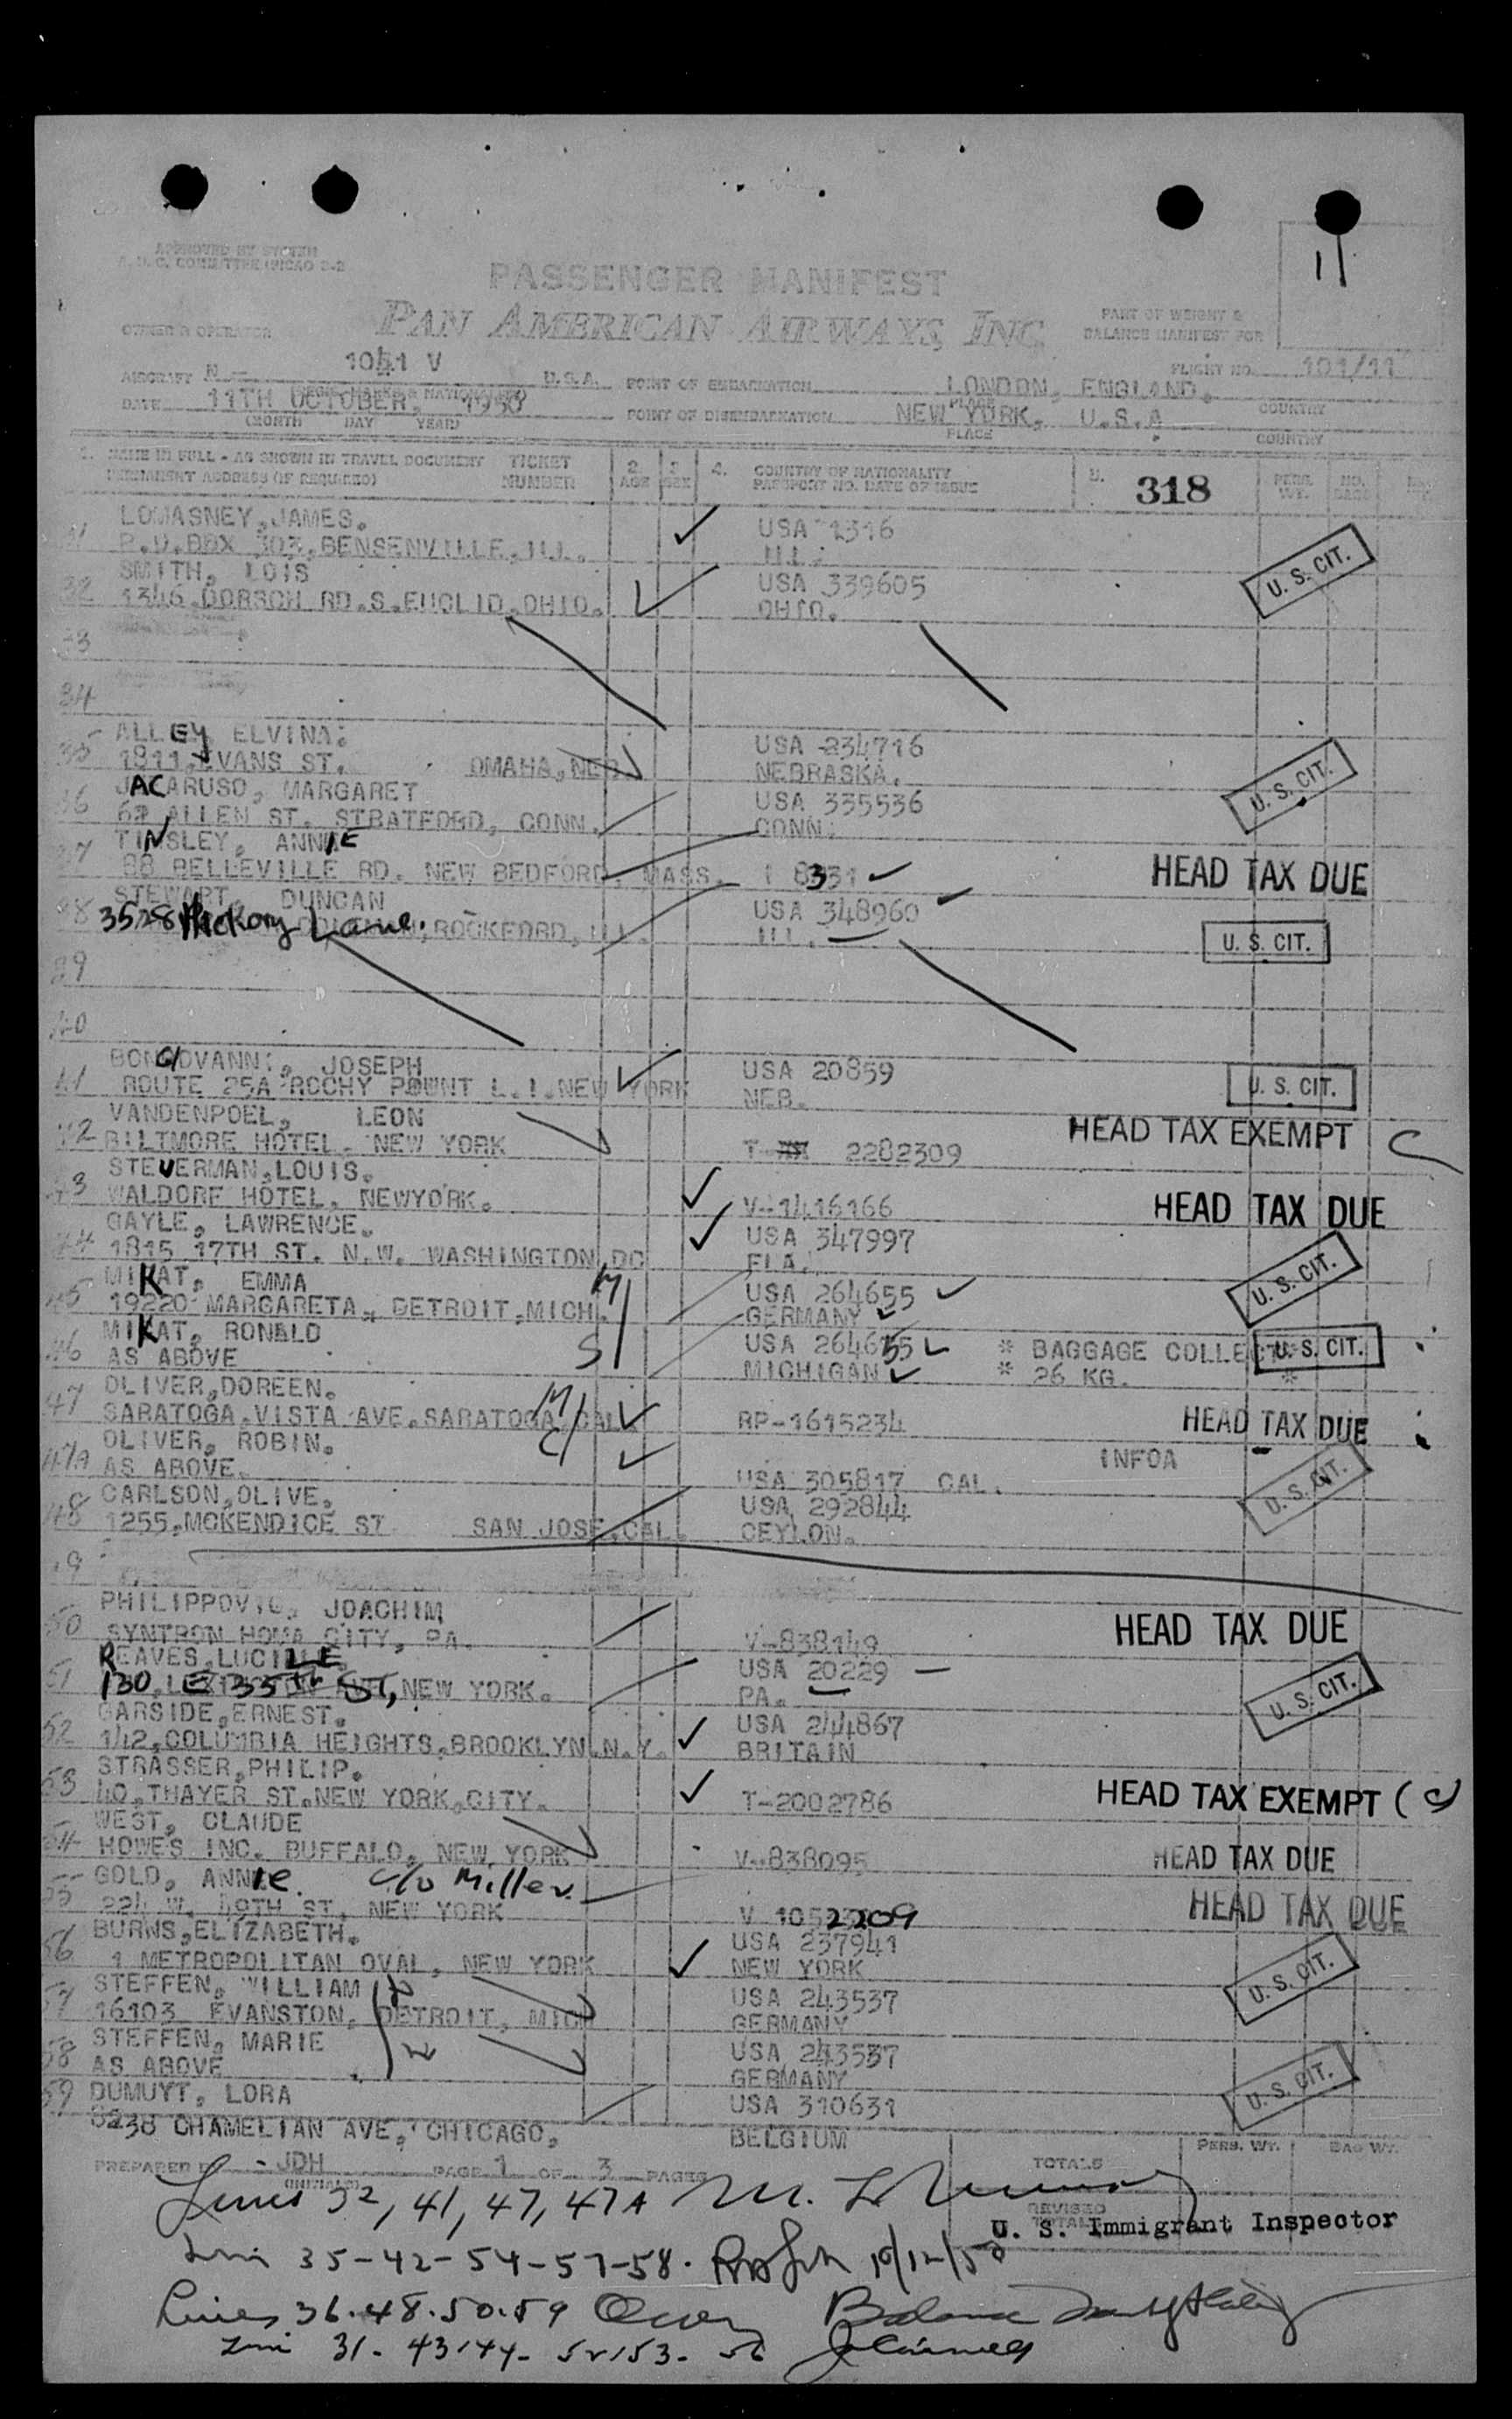 11
APPROVED BY SYSTEM
PASSENGER MANIFEST
PAN AMERICAN AIRWAYS, INC
OWNER & OPERATOR
PART OF WEIGHT &
BALANCE MANIFEST FOR
AIRCRAFT N - 1041 V U.S.A. POINT OF EMBARKATION LONDON, ENGLAND. FLIGHT NO. 101/11
DATE 11TH OCTOBER, 1950 POINT OF DISEMBARKATION NEW YORK, U.S.A
(MONTH DAY YEAR) PLACE COUNTRY
1. NAME IN FULL - AS SHOWN IN TRAVEL DOCUMENT TICKET 2. 3. 4. COUNTRY OF NATIONALITY 5. 318 PERS. NO.
PERMANENT ADDRESS (IF REQUIRED) NUMBER AGE SEX PASSPORT NO. DATE OF ISSUE WT. BAGS
LOMASNEY, JAMES. USA 1316
31 P.O.BOX 303, BENSENVILLE, ILL. ILL. U. S. CIT.
SMITH, LOIS USA 339605
32 1346, DORSCH RD. S. EUCLID, OHIO. OHIO.
33
34
ALLEY ELVINA. USA 234716
35 1811, EVANS ST. OMAHA, NEB. NEBRASKA. U. S. CIT.
JACARUSO, MARGARET USA 335536
36 ALLEN ST. STRATFORD, CONN. CONN.
TINSLEY, ANNIE
37 88 BELLEVILLE RD. NEW BEDFORD, MASS. I 8331 HEAD TAX DUE
STEWART, DUNCAN USA 348960
38 3528 Hickory Lane. ROCKFORD, ILL. ILL. U. S. CIT.
39
40
BONGIOVANNI, JOSEPH USA 20859
41 ROUTE 25A ROCHY POUNT L.I. NEW YORK NEB. U. S. CIT.
VANDENPOEL, LEON
42 BILTMORE HOTEL. NEW YORK T 2282309 HEAD TAX EXEMPT
STEUERMAN, LOUIS.
43 WALDORF HOTEL. NEWYORK. V-1416166 HEAD TAX DUE
GAYLE, LAWRENCE. USA 347997
44 1815 17TH ST. N.W. WASHINGTON, DC FLA. U. S. CIT.
MIKAT, EMMA M USA 264655
45 19220 MARGARETA, DETROIT, MICH. GERMANY
MIKAT, RONALD USA 264655 * BAGGAGE COLLECT U. S. CIT.
46 AS ABOVE S MICHIGAN * 26 KG. *
OLIVER, DOREEN.
47 SARATOGA, VISTA AVE. SARATOGA, CAL M RP-1615234 HEAD TAX DUE
OLIVER, ROBIN. C INFOA
47A AS ABOVE. USA 305817 CAL. U. S. CIT.
CARLSON, OLIVE. USA 292844
48 1255, MCKENDICE ST SAN JOSE, CAL. CEYLON.
49
PHILIPPOVIC, JOACHIM
50 SYNTRON HOMA CITY, PA. V-838149 HEAD TAX DUE
REAVES, LUCILLE USA 20229
51 130, E 35th ST, NEW YORK. PA. U. S. CIT.
GARSIDE, ERNEST. USA 244867
52 142, COLUMBIA HEIGHTS, BROOKLYN, N.Y. BRITAIN
STRASSER, PHILIP.
53 40, THAYER ST. NEW YORK, CITY. T-2002786 HEAD TAX EXEMPT (c)
WEST, CLAUDE
54 HOWES INC. BUFFALO, NEW YORK V-838095 HEAD TAX DUE
GOLD, ANNIE. c/o Miller
55 224 W. 49TH ST. NEW YORK V 1052209 HEAD TAX DUE
BURNS, ELIZABETH. USA 237941
56 1 METROPOLITAN OVAL, NEW YORK NEW YORK U. S. CIT.
STEFFEN, WILLIAM USA 243537
57 16103 EVANSTON, DETROIT, MICH GERMANY
STEFFEN, MARIE USA 243537
58 AS ABOVE GERMANY U. S. CIT.
59 DUMUYT, LORA USA 310631
CHAMELIAN AVE, CHICAGO. BELGIUM
PREPARED BY - JDH PAGE 1 OF 3 PAGES TOTALS PERS. WT. BAG WT.
(INITIALS)
Lines 32, 41, 47, 47A
REVISED
TOTALS
U. S. Immigrant Inspector
Lines 35-42-54-57-58. 10/12/50
Lines 36.48.50.59 Balance
Lines 31-43144-52153-56